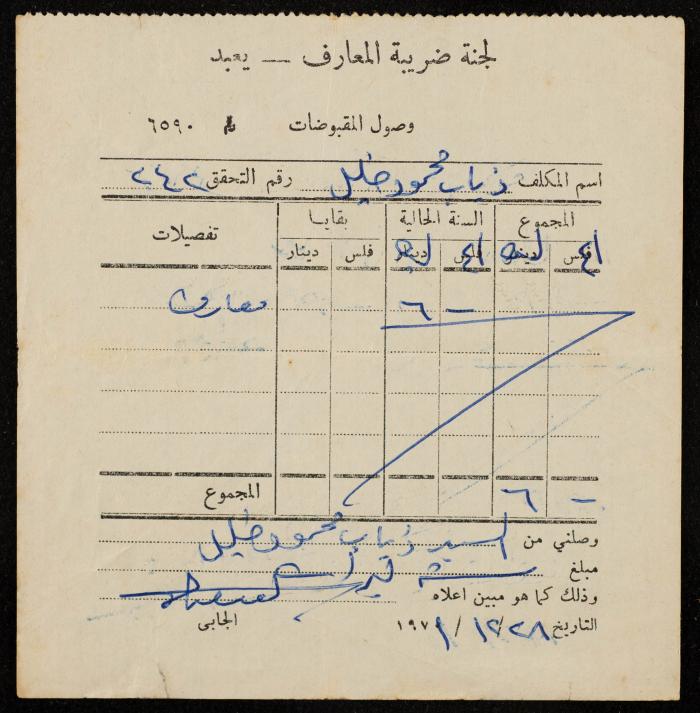 لجنة ضريبة المعارف — يعبد
وصول المقبوضات № ٦٥٩٠
اسم المكلف ذياب محمود خليل رقم التحقق ٢٤٢
المجموع السنة الحالية بقايا تفصيلات
فلس دينار فلس دينار فلس دينار
أغ ليرة أغ ليرة
— ٦ معارف
— ٦ المجموع
وصلني من السيد ذياب محمود خليل
مبلغ ستة ليرات
وذلك كما هو مبين اعلاه
التاريخ ٢٨/١٢/١٩٧١ الجابي